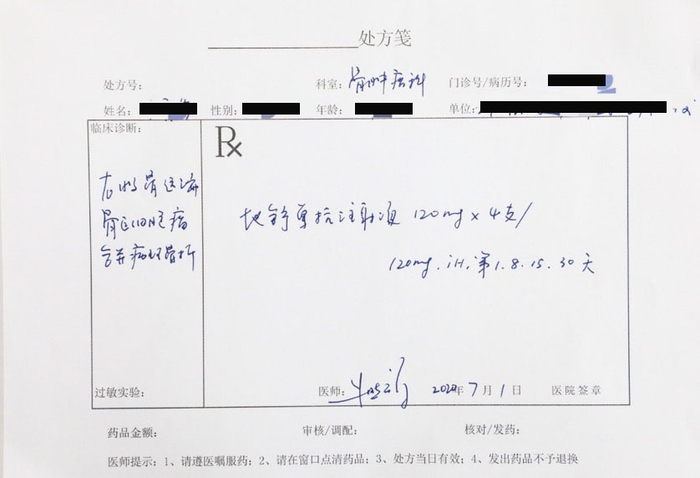 处方笺
处方号: 科室: 骨肿瘤科 门诊号/病历号:
姓名: 性别: 年龄: 单位:
临床诊断:
Rx
右 骨远端
骨巨细胞瘤
合并病理骨折
地舒单抗注射液 120mg×4支/
120mg.iH.第1.8.15.30天
过敏实验:
医师: 2020年7月1日 医院签章
药品金额: 审核/调配: 核对/发药:
医师提示: 1、请遵医嘱服药; 2、请在窗口点清药品; 3、处方当日有效; 4、发出药品不予退换